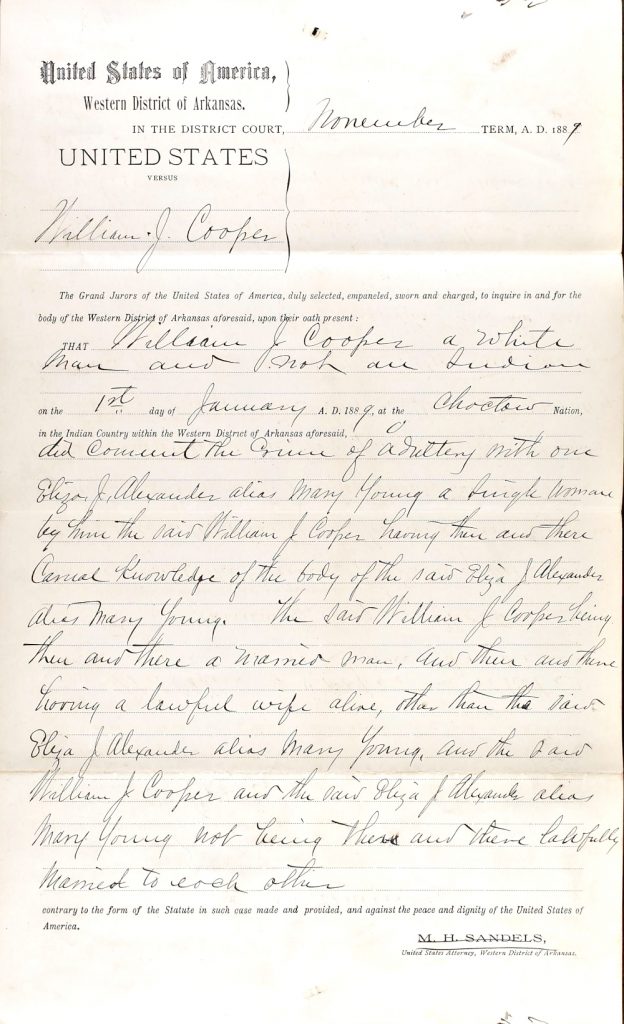 United States of America,
Western District of Arkansas.
IN THE DISTRICT COURT, November TERM, A. D. 1889
UNITED STATES
VERSUS
William J. Cooper
The Grand Jurors of the United States of America, duly selected, empaneled, sworn and charged, to inquire in and for the
body of the Western District of Arkansas aforesaid, upon their oath present :
THAT William J Cooper a White
Man and not an Indian
on the 1st day of January A. D. 1889, at the Choctaw Nation,
in the Indian Country within the Western District of Arkansas aforesaid,
did Commit the Crime of Adultery with one
Eliza J. Alexander alias Mary Young a Single Woman
by him the said William J Cooper having then and there
Carnal Knowledge of the body of the said Eliza J Alexander
alias Mary Young. the said William J Cooper being
then and there a Married man, and then and there
having a lawful wife alive, other than the said
Eliza J Alexander alias Mary Young, and the said
William J Cooper and the said Eliza J Alexander alias
Mary Young not being then and there lawfully
Married to each other
contrary to the form of the Statute in such case made and provided, and against the peace and dignity of the United States of
America.
M. H. SANDELS,
United States Attorney, Western District of Arkansas.